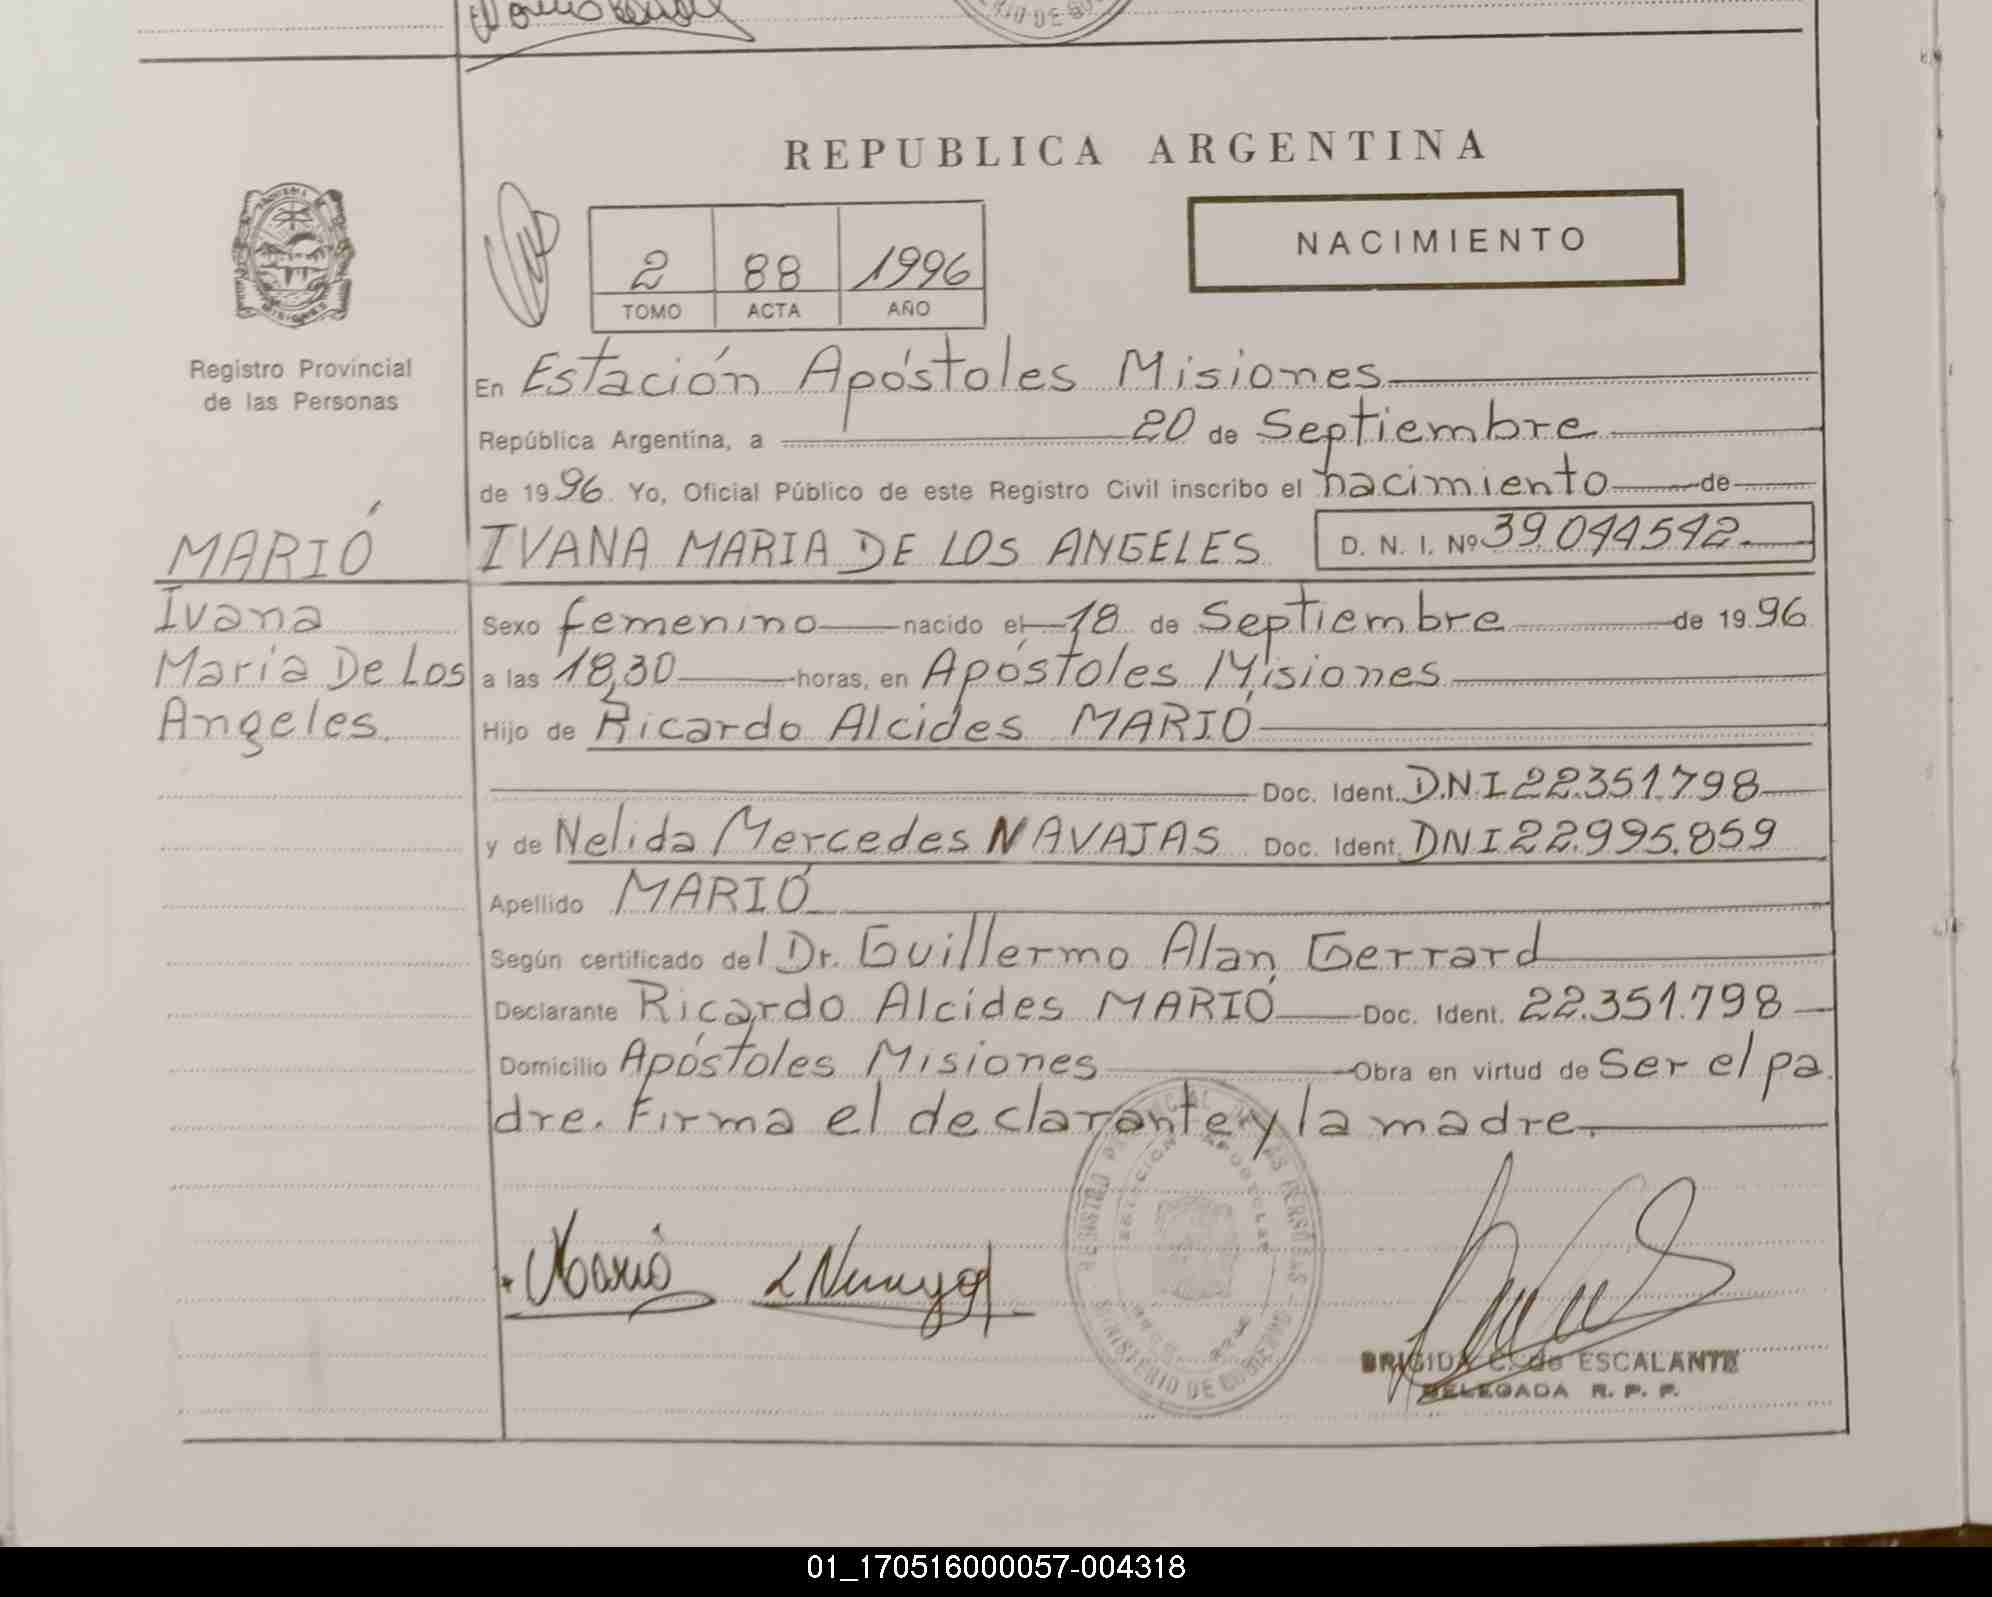 REPUBLICA ARGENTINA
NACIMIENTO
2 88 1996
TOMO ACTA AÑO
Registro Provincial
de las Personas
En Estación Apóstoles Misiones
República Argentina, a 20 de Septiembre
de 1996. Yo, Oficial Público de este Registro Civil inscribo el nacimiento de
MARIÓ
IVANA MARIA DE LOS ANGELES D. N. I. Nº 39.044542.
Ivana
Maria De Los
Angeles.
Sexo femenino nacido el 18 de Septiembre de 1996
a las 18,30 horas, en Apóstoles Misiones
Hijo de Ricardo Alcides MARIÓ
Doc. Ident. D.N.I 22.351.798
y de Nelida Mercedes NAVAJAS Doc. Ident. DNI 22.995.859
Apellido MARIÓ
Según certificado del Dr. Guillermo Alan Gerrard
Declarante Ricardo Alcides MARIÓ Doc. Ident. 22.351.798
Domicilio Apóstoles Misiones Obra en virtud de Ser el pa
dre. Firma el declarante y la madre.
Marió
REGISTRO PROVINCIAL DE LAS PERSONAS
MINISTERIO DE GOBIERNO
BRIGIDA C. de ESCALANTE
DELEGADA R. P. P.
01_170516000057-004318